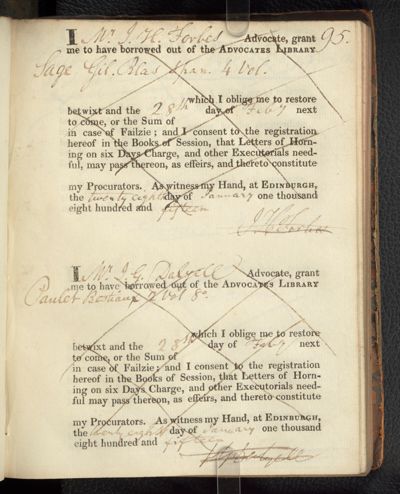 I Mr J. H. Forbes Advocate, grant 95.
me to have borrowed out of the ADVOCATES LIBRARY
Sage Gil Blas 4 Vol.
which I oblige me to restore
betwixt and the 28th day of Feby next
to come, or the Sum of
in case of Failzie; and I consent to the registration
hereof in the Books of Session, that Letters of Horn-
ing on six Days Charge, and other Executorials need-
ful, may pass thereon, as effeirs, and thereto constitute
my Procurators. As witness my Hand, at EDINBURGH,
the twenty eighth day of January one thousand
eight hundred and fifteen
J. H. Forbes
I Mr J. G. Dalyell Advocate, grant
me to have borrowed out of the ADVOCATES LIBRARY
Paulet 2 Vol 8o
which I oblige me to restore
betwixt and the 28th day of Feby next
to come, or the Sum of
in case of Failzie; and I consent to the registration
hereof in the Books of Session, that Letters of Horn-
ing on six Days Charge, and other Executorials need-
ful may pass thereon, as effeirs, and thereto constitute
my Procurators. As witness my Hand, at EDINBURGH,
the twenty eighth day of January one thousand
eight hundred and fifteen